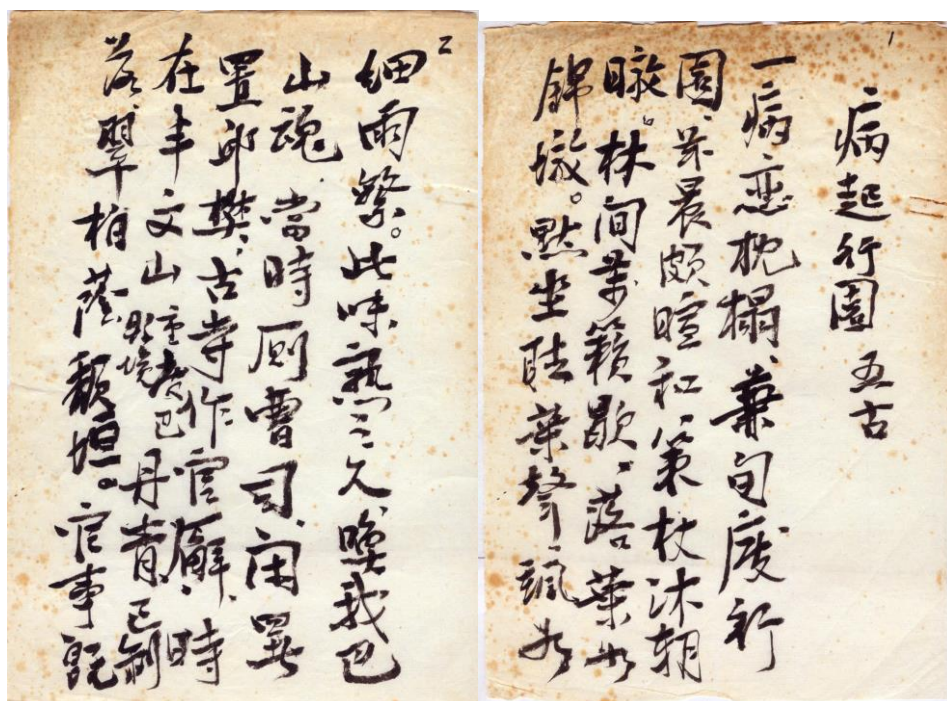 1
病起行園 五古
一病恋枕榻、兼旬废行
園、茲晨頗暄和、策杖沐朝
暾。林间萬籟歇、落葉如
錦墩。默坐聴葉聲、颯如
2
细雨繁。此味熟已久、喚我巴
山魂、當時厠曹司、
置邱樊、古寺作官廨、時
在丰文山重庆巴縣境丹青已剝
落、翠柏蔭頹垣。官事既